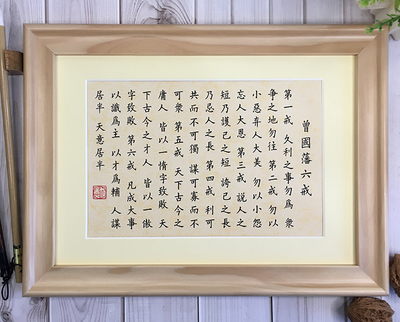 曾國藩六戒
第一戒 久利之事勿為 衆
爭之地勿往 第二戒 勿以
小惡弃人大美 勿以小怨
忘人大恩 第三戒 説人之
短乃護己之短 誇己之長
乃忌人之長 第四戒 利可
共而不可獨 謀可寡而不
可衆 第五戒 天下古今之
庸人 皆以一惰字致敗 天
下古今之才人 皆以一傲
字致敗 第六戒 凡成大事
以識為主 以才為輔 人謀
居半 天意居半